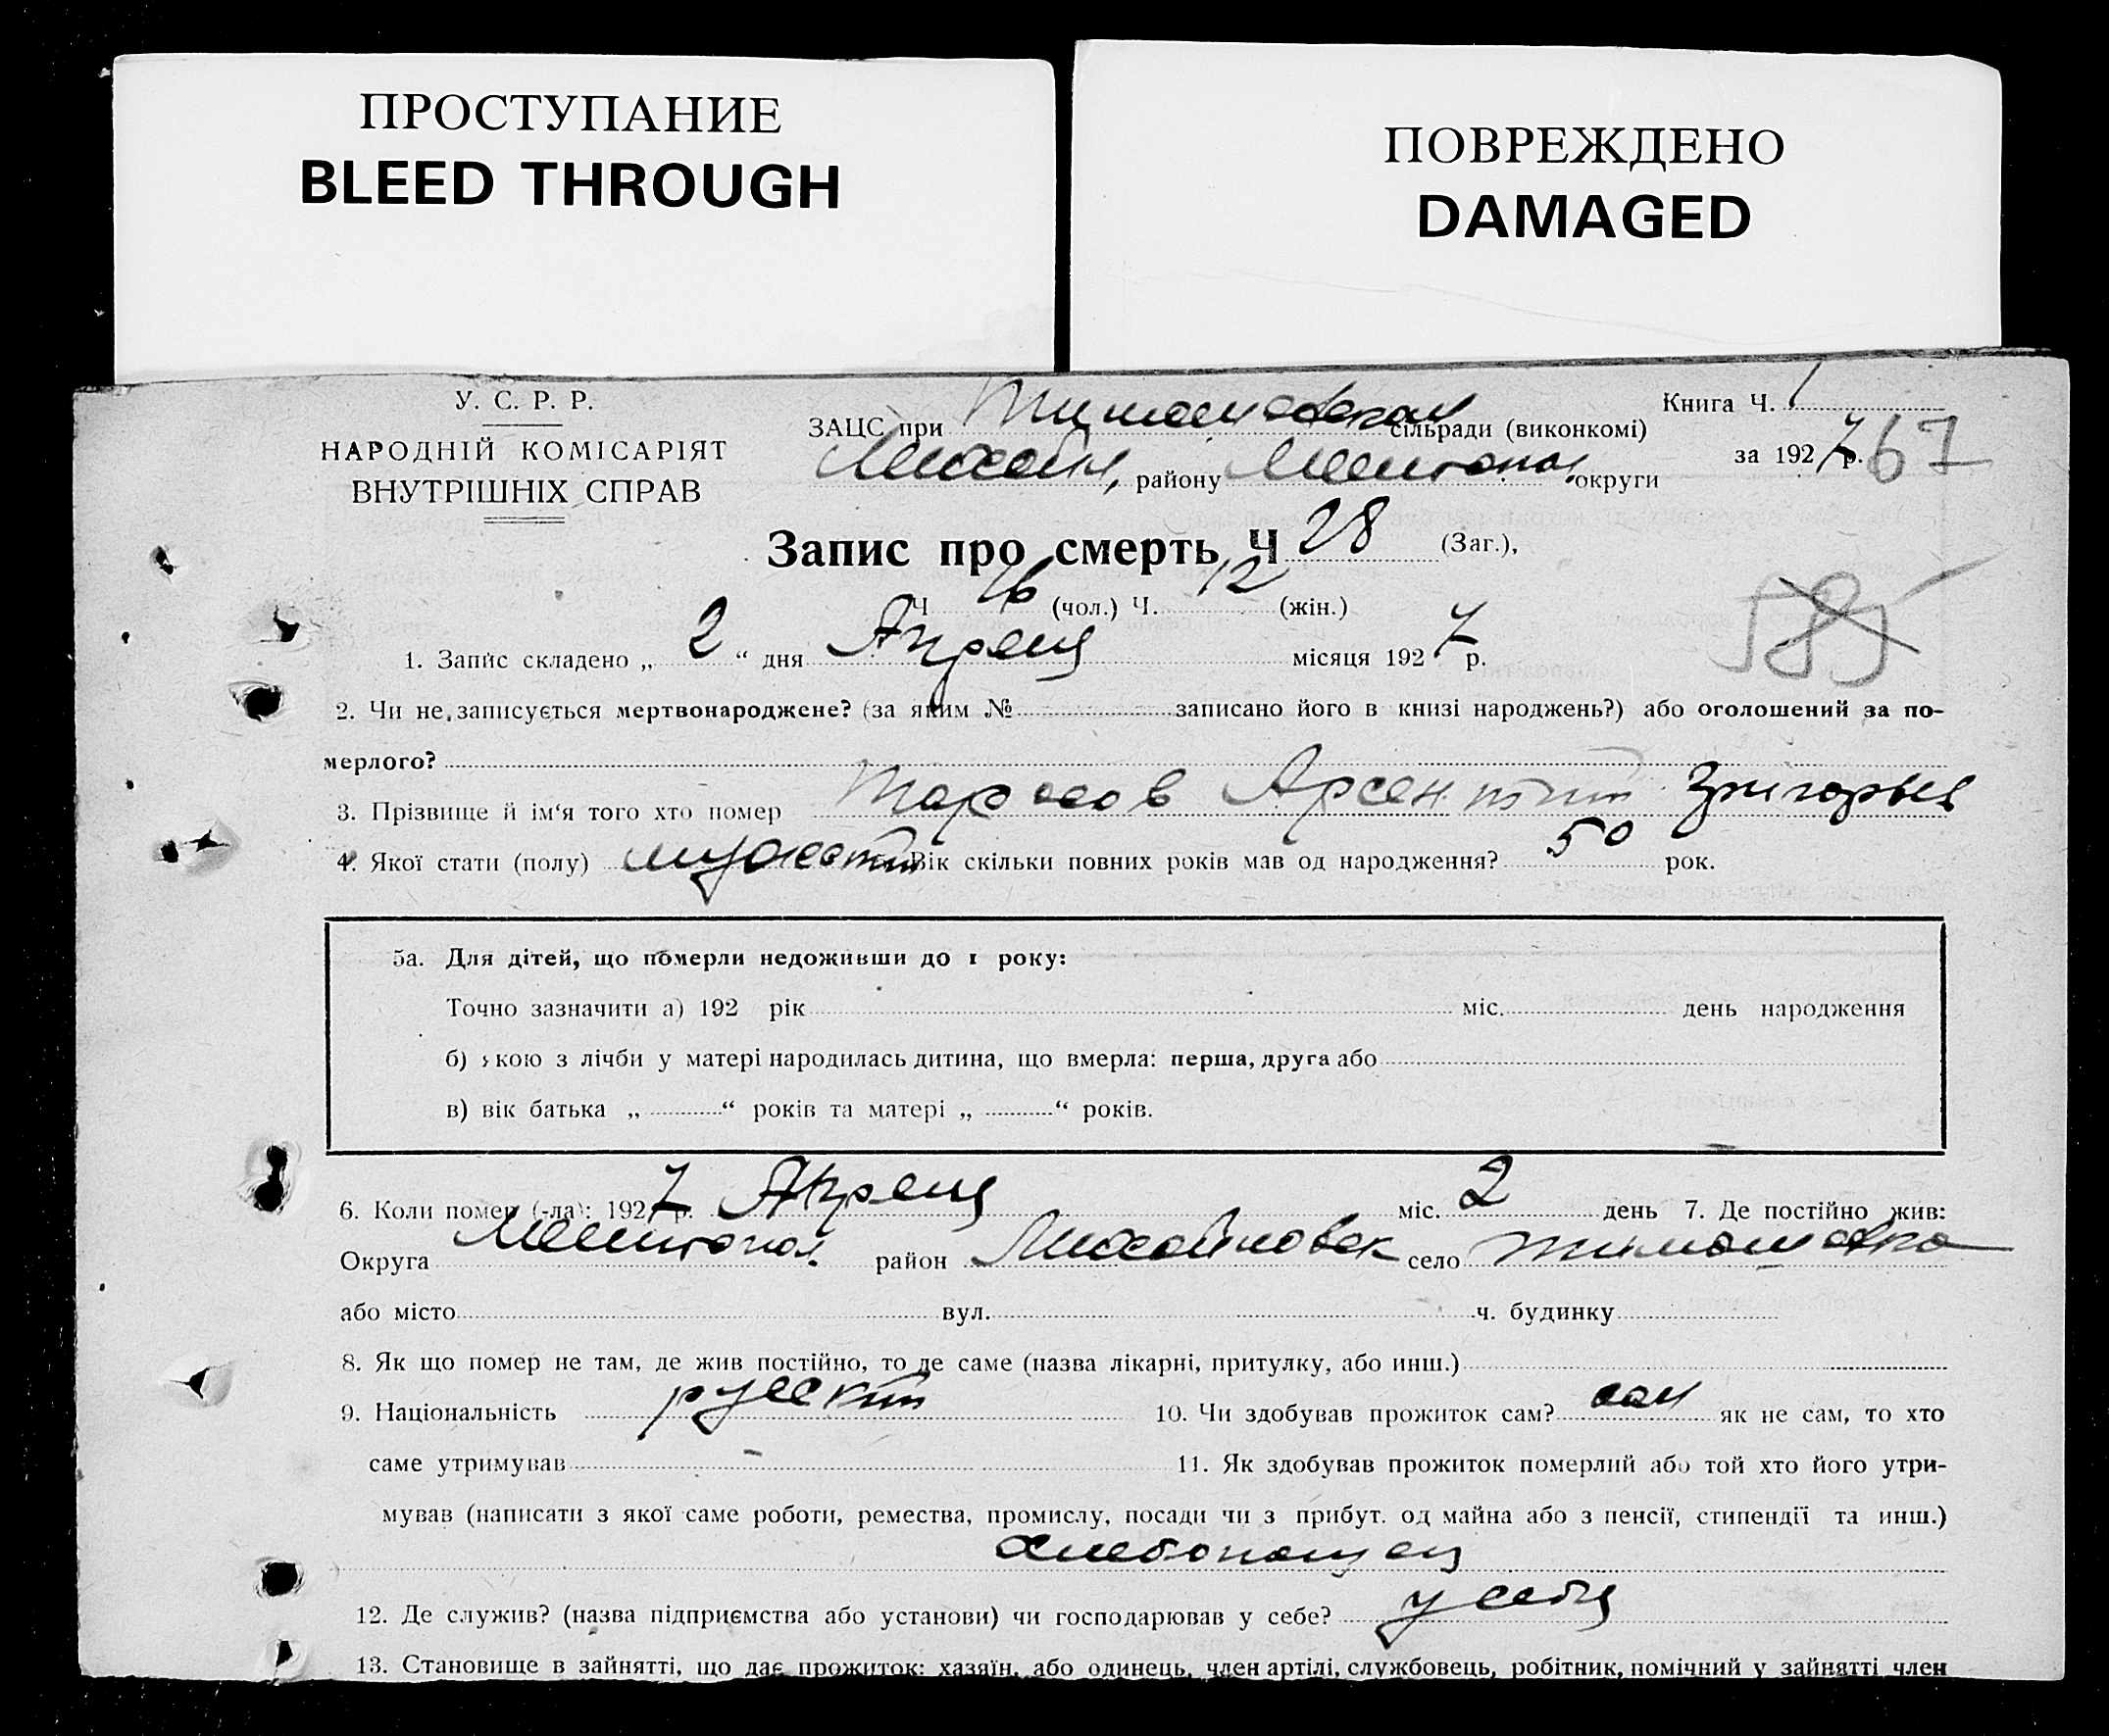 ПРОСТУПАНИЕ
BLEED THROUGH
ПОВРЕЖДЕНО
DAMAGED
У. С. Р. Р.
НАРОДНІЙ КОМІСАРІЯТ
ВНУТРІШНІХ СПРАВ
ЗАЦС при Тимошевском сільради (виконкомі)
Михайл, району Мелитопол. округи
Книга Ч. 1
за 1927 р. 67
Запис про смерть Ч 28 (Заг.),
Ч 16 (чол.) Ч. 12 (жін.)
585
1. Запис складено „ 2 “ дня Апреля місяця 1927 р.
2. Чи не записується мертвонароджене? (за яким № записано його в книзі народжень?) або оголошений за по-
мерлого?
3. Прізвище й ім‘я того хто помер Тарасов Арсентий Григорьев
4. Якої стати (полу) мужеский Вік скільки повних років мав од народження? 50 рок.
5а. Для дітей, що померли недоживши до 1 року:
Точно зазначити а) 192 рік міс. день народження
б) якою з лічби у матері народилась дитина, що вмерла: перша, друга або
в) вік батька „ “ років та матері „ “ років.
6. Коли помер (-ла): 1927 р. Апреля міс. 2 день 7. Де постійно жив:
Округа Мелитопол. район Михайловск село Тимошевка
або місто вул. ч. будинку
8. Як що помер не там, де жив постійно, то де саме (назва лікарні, притулку, або инш.)
9. Національність русский 10. Чи здобував прожиток сам? сам як не сам, то хто
саме утримував — 11. Як здобував прожиток померлий або той хто його утри-
мував (написати з якої саме роботи, ремества, промислу, посади чи з прибут. од майна або з пенсії, стипендії та инш.)
хлебопашец
12. Де служив? (назва підприємства або установи) чи господарював у себе? у себя
13. Становище в зайнятті, що дає прожиток: хазяїн, або одинець, член артілі, службовець, робітник, помічний у зайнятті член